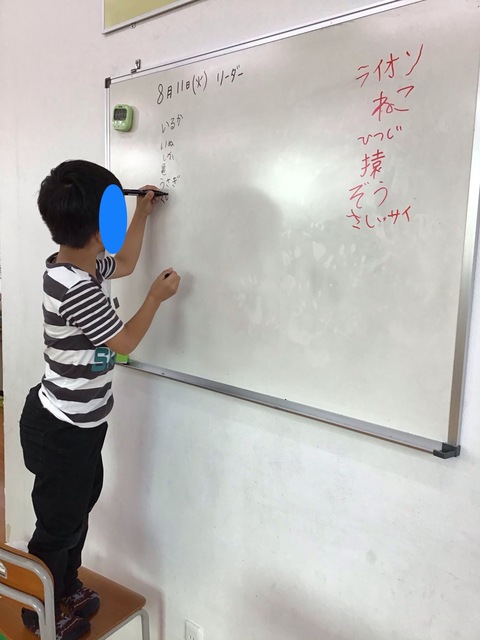 8月11日(火) リーダー
いるか
いぬ
しか
うさぎ
ライオン
ねこ
ひつじ
猿
ぞう
さい サイ